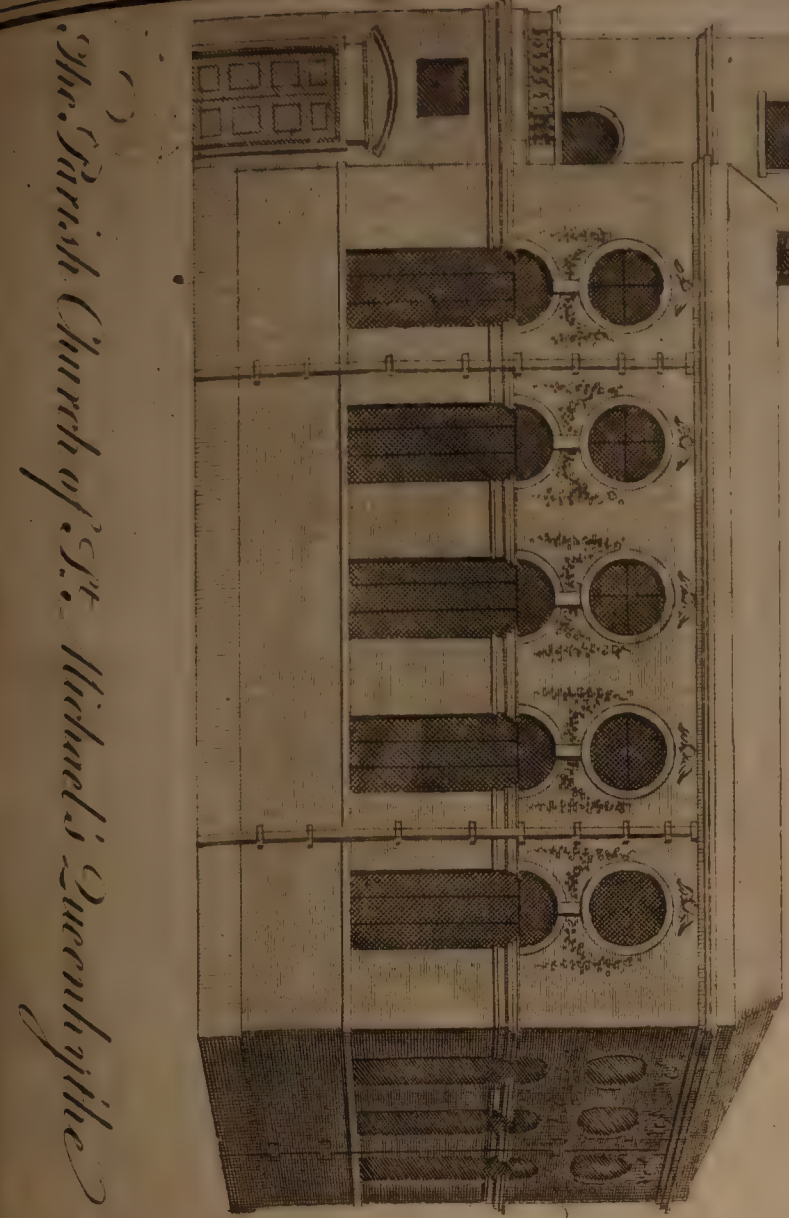 The Parish Church of St. Michael's Queenhythe